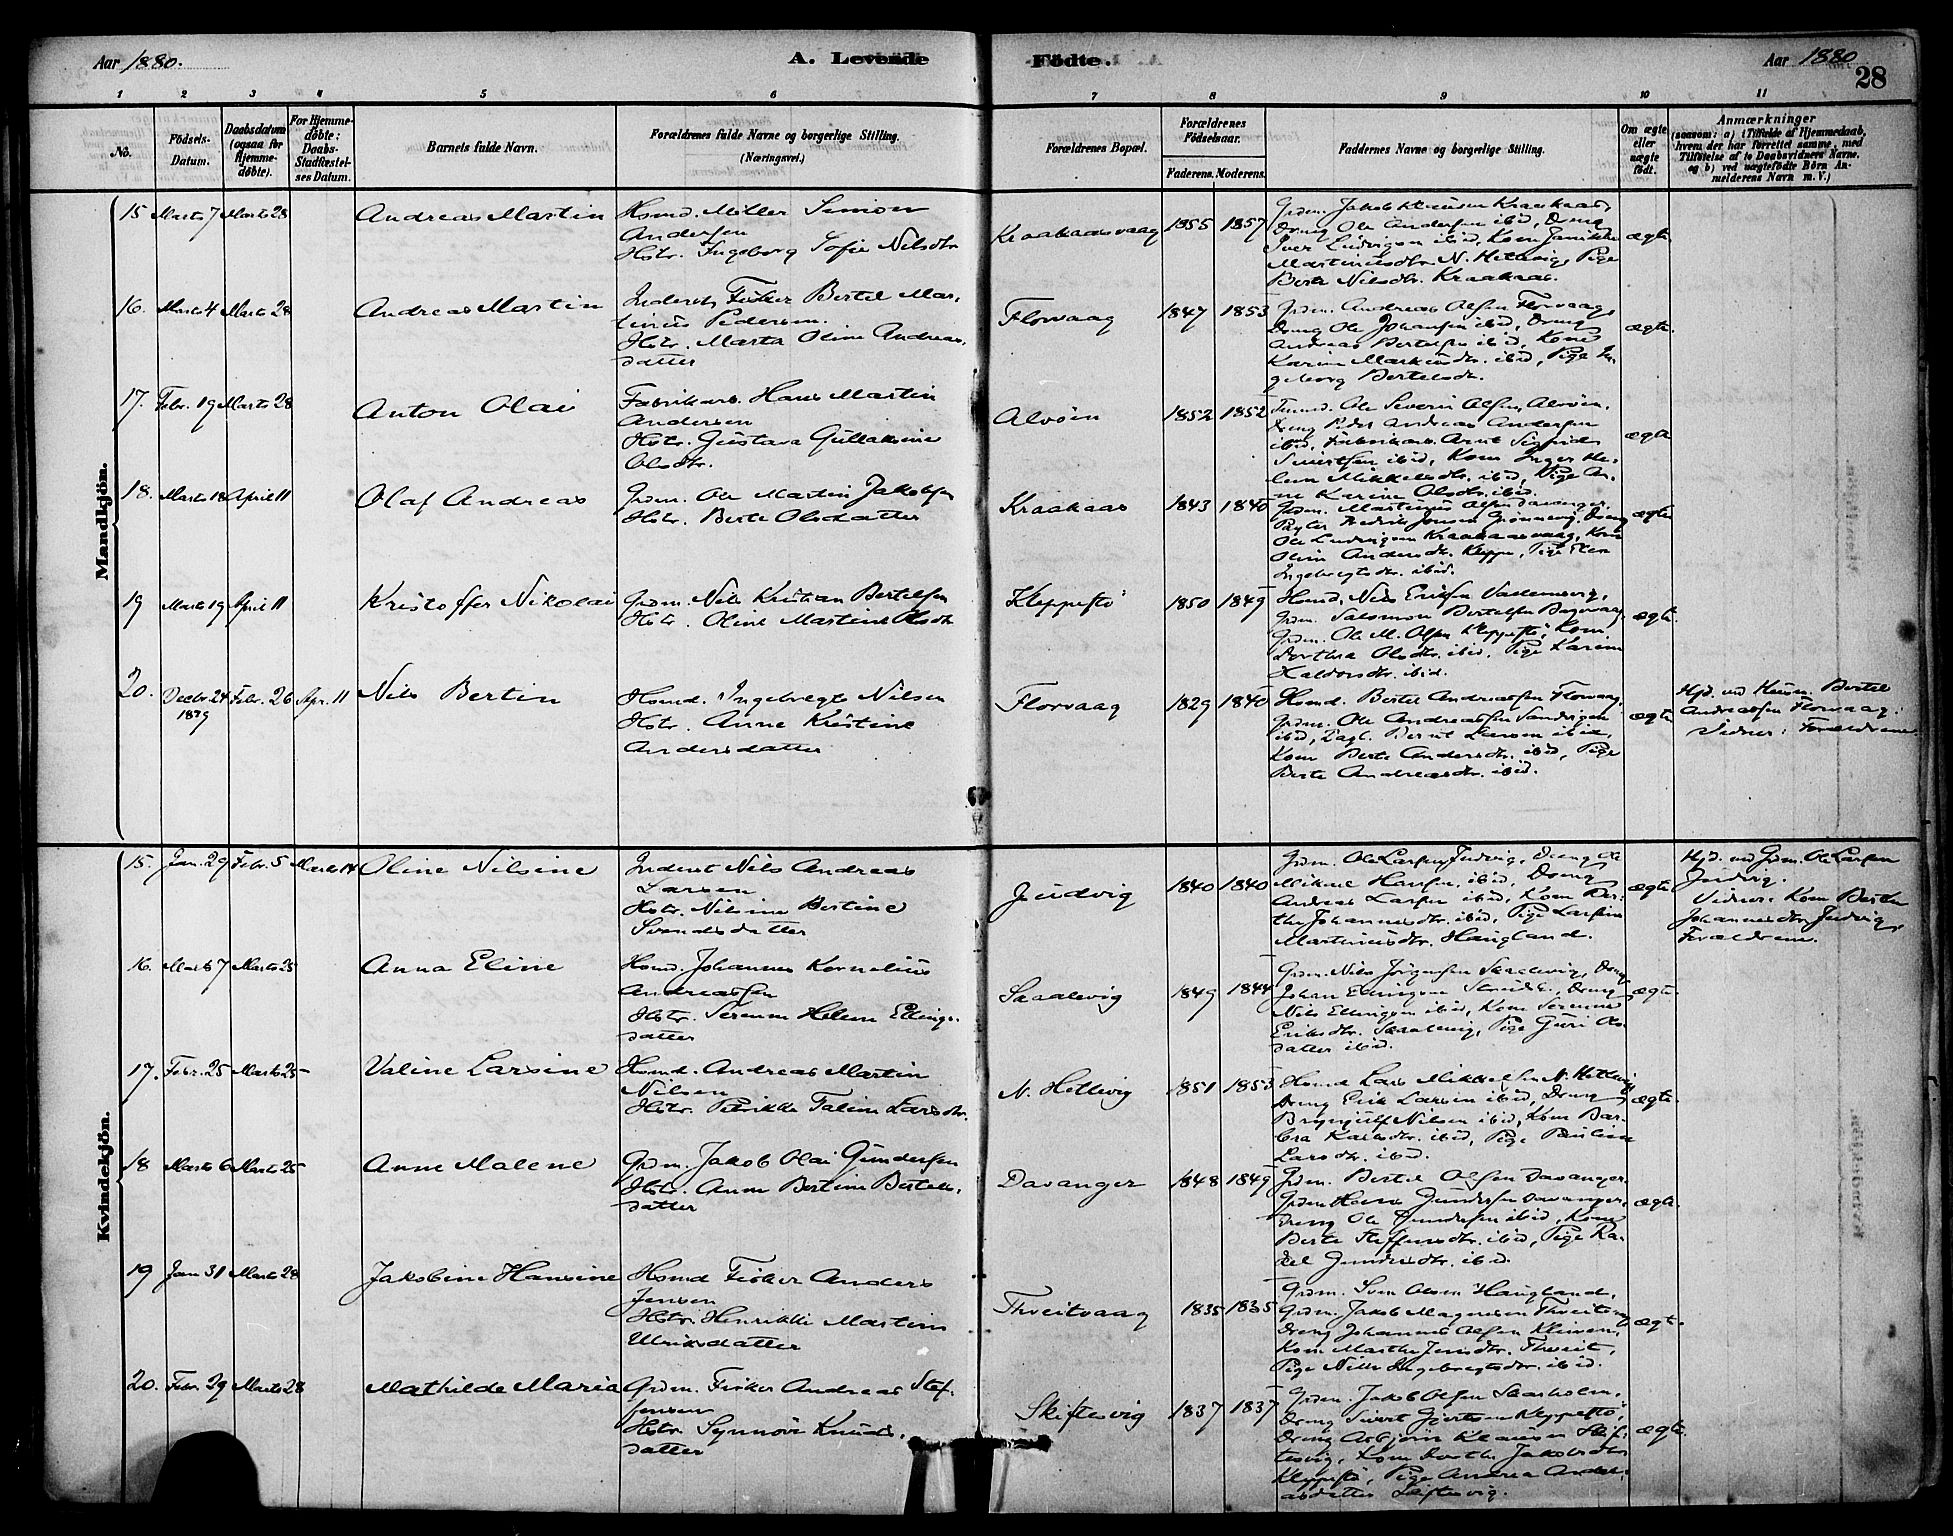 Aar 1880.
A. Levende
Födte.
Aar 1880
28
1 2 3 4 5 6 7 8 9 10 11
No.
Födsels-
Datum.
Daabsdatum
(ogsaa for
Hjemme-
döbte).
For Hjemme-
döbte:
Daabs-
Stadfæstel-
ses Datum.
Barnets fulde Navn.
Forældrenes fulde Navne og borgerlige Stilling.
(Næringsvei.)
Forældrenes Bopæl.
Forældrenes
Födselsaar.
Faderens. Moderens.
Faddernes Navne og borgerlige Stilling.
Om ægte
eller
uægte
födt.
Anmærkninger
(saasom: a) i Tilfælde af Hjemmedaab,
hvem der har forrettet samme, med
Tilföielse af to Daabsvidners Navne,
og b) ved uægtefödte Börn An-
melderens Navn m. V.)
Mandkjön.
15 Marts 7 Marts 28
Andreas Martin
Hsmd. Møller Simon
Andersen
Hstr. Ingeborg Sofie Nilsdtr
Kraakaasvaag
1855 1857
Grdm. Jakob Klausen Kraakaas,
Dreng Ole Andersen ibid, Dreng
Iver Ludvigsen ibid, Kone Jannikke
Martinusdtr. N. Hetlevig, Pige
Berte Nilsdtr. Kraakaas.
ægte
16. Marts 4 Marts 28
Andreas Martin
Inderst, Fisker Bertel Mar-
tinus Pedersen.
Hstr. Marta Oline Andreas-
datter
Florvaag
1847 1853
Grdm. Andreas Olsen Florvaag,
Dreng Ole Johansen ibid, Dreng
Andreas Bertelsen ibid, Kone
Karine Markusdtr. ibid, Pige In-
geborg Bertelsdtr.
ægte.
17. Febr. 19 Marts 28
Anton Olai
Fabrikarb. Hans Martin
Andersen
Hstr. Gustava Gullaksine
Olsdtr.
Alvöen
1852 1852
Ole Severin Olsen, Alvöen,
Dreng Peder Andreas Andersen
ibid, Fabrikarb. Arnt Sigfrid
Sivertsen ibid, Kone Inger He-
lene Mikkelsdtr. ibid, Pige An-
ne Karine Olsdtr. ibid.
ægte
18. Marts 18 April 11
Olaf Andreas
Grdm. Ole Martin Jakobsen
Hstr. Berte Olsdatter
Kraakaas
1843 1840
Grdm. Martinus Olsen Davanger,
Fredrik Jonsen Grönnevig, Dreng
Ole Ludvigsen Kraakaasvaag, Kone
Oline Andersdtr. Kleppe, Pige Elen
Ingebregtsdtr. ibid.
ægte
19 Marts 19 April 11
Kristoffer Nikolai
Grdm. Nils Kristian Bertelsen
Hstr. Oline Martine Olsdtr
Kleppestö
1850 1849
Hsmd. Nils Eriksen
Grdm. Salomon Bertelsen
Grdm. Ole M. Olsen Kleppestö, Kone
Dorthea Olsdtr. ibid. Pige Karine
Haldorsdtr. ibid.
ægte.
20. Decbr. 24
1879
Febr. 26 Apr. 11
Nils Bertin
Hsmd. Ingebregt Nilsen
Hstr. Anne Kristine
Andersdatter
Florvaag
1829 1840
Hsmd. Bertel Andreassen Florvaag,
Grdm. Ole Andreassen Sandvigen
ibid, Dagl. Bernt Larsen ibid,
Kone Berte Andersdtr. ibid, Pige
Berte Andreasdtr. ibid.
ægte
Hjd. ved Hsm. Bertel
Andreassen Florvaag.
Vidner: Forældrene
Kvindekjön.
15. Jan. 29 Febr. 5 Marts 14
Oline Nilsine
Inderst Nils Andreas
Larsen
Hstr. Nilsine Bertine
Svendsdatter
Judvig
1840 1840
Grdm. Ole Larsen Judvig, Dreng Ole
Mikael Hansen ibid, Dreng
Andreas Larsen ibid, Kone Ber-
the Johannesdtr. ibid, Pige Larsine
Martinusdtr. Haugland.
ægte
Hjd. ved Grdm. Ole Larsen
Judvig.
Vidner: Kone Berte
Johannesdtr Judvig,
Forældrene.
16. Marts 7 Marts 25
Anna Eline
Hsmd. Johannes Kornelius
Andreassen
Hstr. Serenna Helene Ellings-
datter
Skaalevig
1849 1844
Grdm. Nils Jörgensen Skaalevig, Dreng
Johan Ellingsen Dreng
Nils Ellingsen ibid, Kone Serenne
Eriksdtr. Skaalevig, Pige Guri Ols-
datter ibid.
ægte.
17. Febr. 25 Marts 25
Valine Larsine
Hsmd. Andreas Martin
Nilsen
Hstr. Petrikke Taline Larsdtr.
N. Hetlevig
1851 1853
Hsmd Lars Mikkelsen N. Hetlevig
Dreng Erik Larsen ibid, Dreng
Brynjulf Nilsen ibid, Kone Bar-
bra Karlsdtr. ibid, Pige Pauline
Larsdtr. ibid.
ægte.
18 Marts 6 Marts 25
Anne Malene
Grdm. Jakob Olai Gundersen
Hstr. Anne Bertine Bertels-
datter
Davanger
1848 1849
Grdm. Bertel Olsen Davanger
Grdm Hans Gundersen Davanger,
Dreng Ole Gundersen ibid, Kone
Berte Steffensdtr. ibid, Pige Ra-
kel Gundersdtr. ibid.
ægte.
19 Jan 31 Marts 28
Jakobine Hansine
Hsmd Fisker Anders
Jensen
Hstr. Henrikke Martine
Ulriksdatter
Thveitvaag
1835 1835
Grdm. Sven Olsen Haugland,
Grdm. Jakob Magnesen Thveitvaag
Dreng Johannes Olsen
Kone Marthe Jensdtr. Thveit,
Pige Nille Ingebregtsdtr. ibid.
ægte.
20. Febr. 29 Marts 28
Mathilde Maria
Grdm. Fisker Andreas Stef-
fensen
Hstr. Synnöve Knuds-
datter
Skiftesvig
1837 1837
Grdm. Jakob Olsen
Dreng Sivert Gjertsen Kleppestö,
Dreng Asbjörn Klausen Skif-
tesvig, Kone Dorthe Jakobsdtr
Kleppestö, Pige Andrea Andre-
asdatter Skiftesvig.
ægte.